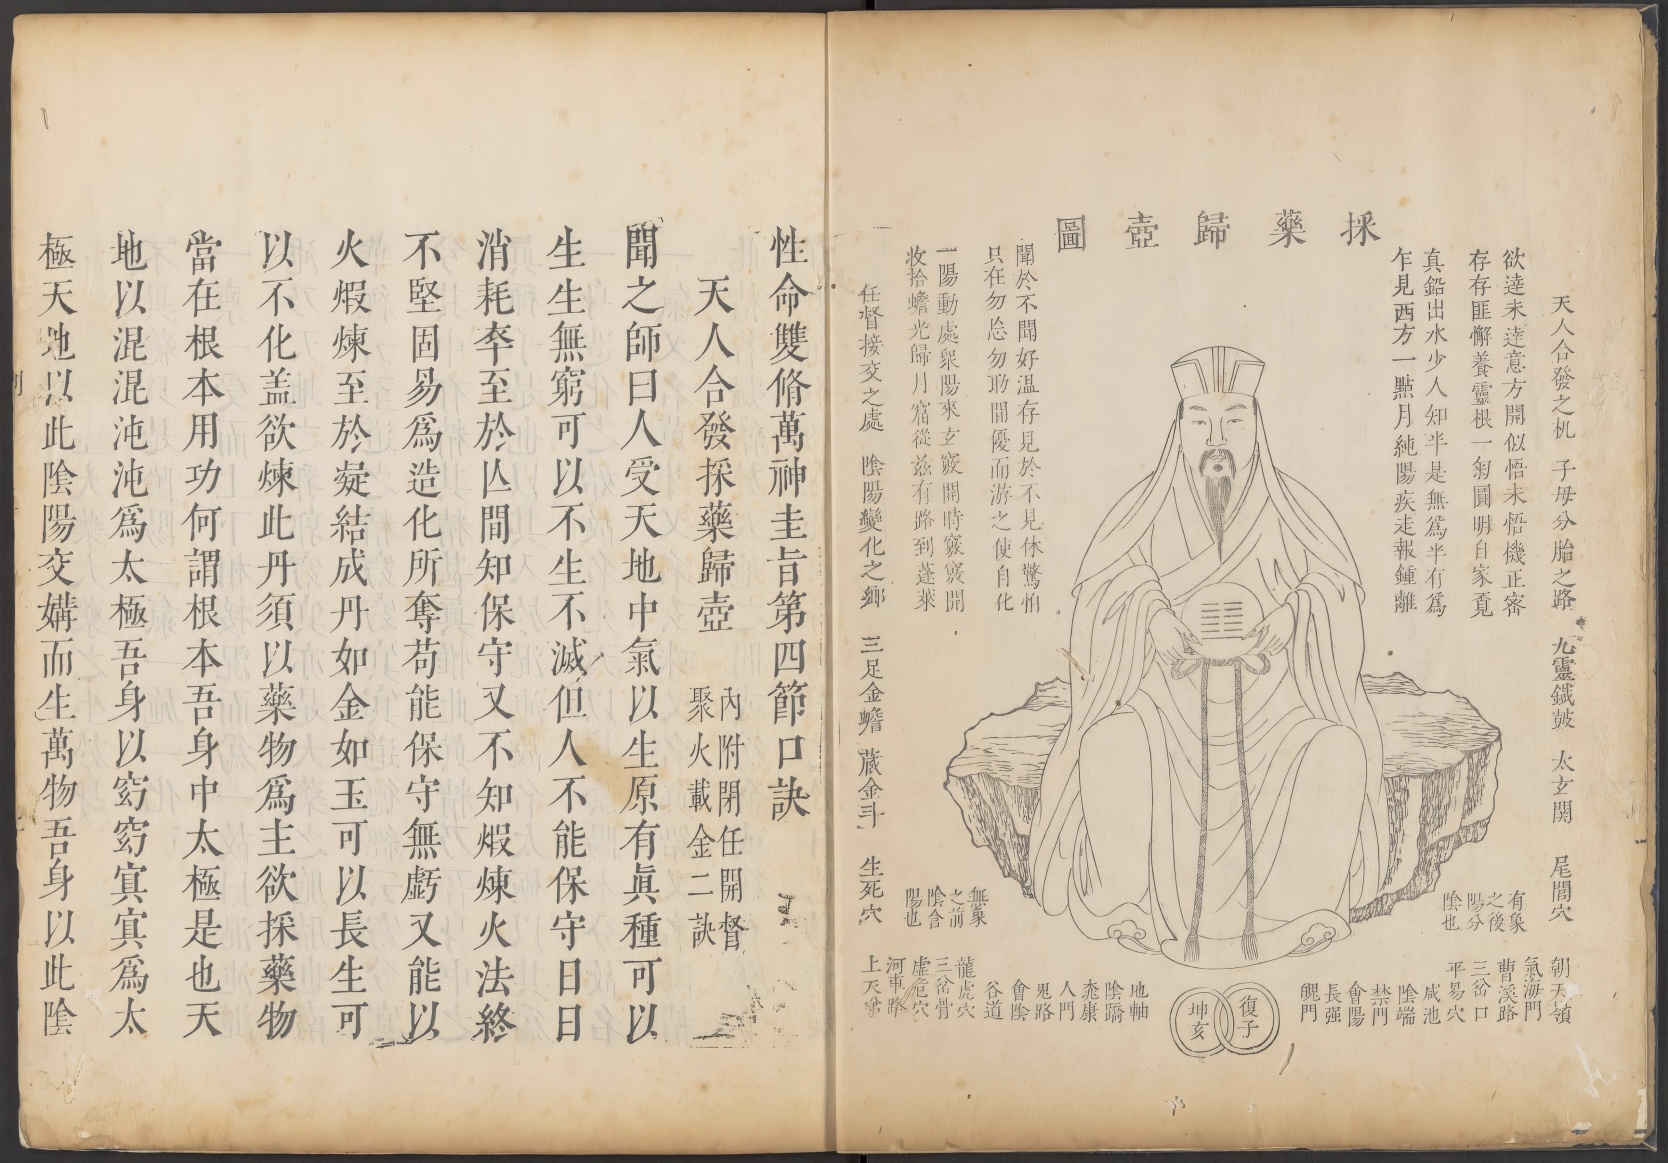 採藥歸壺圖
天人合發之机 子母分胎之路 九靈鐵鼓 太玄関 尾閭穴 朝天嶺
氣海門
曹溪路
三岔口
平易穴
咸池
陰端
禁門
會陽
長强
魄門
欲達未達意方開似悟未悟機正密
存存匪懈養靈根一匊圓明自家覔
真鉛出水少人知半是無爲半有爲
乍見西方一點月純陽疾走報鍾離
有象
之後
陽分
陰也
復子
坤亥
聞於不聞好温存見於不見休驚怕
只在勿忘勿助間優而游之使自化
一陽動處衆陽來玄竅開時竅竅開
收拾蟾光歸月窟從兹有路到蓬萊
無象
之前
陰含
陽也
地軸
陰蹻
桃康
人門
鬼路
會陰
谷道
龍虎穴
三岔骨
虛危穴
河車路
上天梯
任督接交之處 陰陽變化之鄉 三足金蟾 藏金斗 生死穴
性命雙脩萬神圭旨第四節口訣
天人合發採藥歸壺 內附閉任開督
聚火載金二訣
聞之師曰人受天地中氣以生原有眞種可以
生生無窮可以不生不滅但人不能保守日日
消耗卒至於亾間知保守又不知煆煉火法終
不堅固易爲造化所奪苟能保守無虧又能以
火煆煉至於凝結成丹如金如玉可以長生可
以不化盖欲煉此丹須以藥物爲主欲採藥物
當在根本用功何謂根本吾身中太極是也天
地以混混沌沌爲太極吾身以窈窈冥冥爲太
極天地以此陰陽交媾而生萬物吾身以此陰